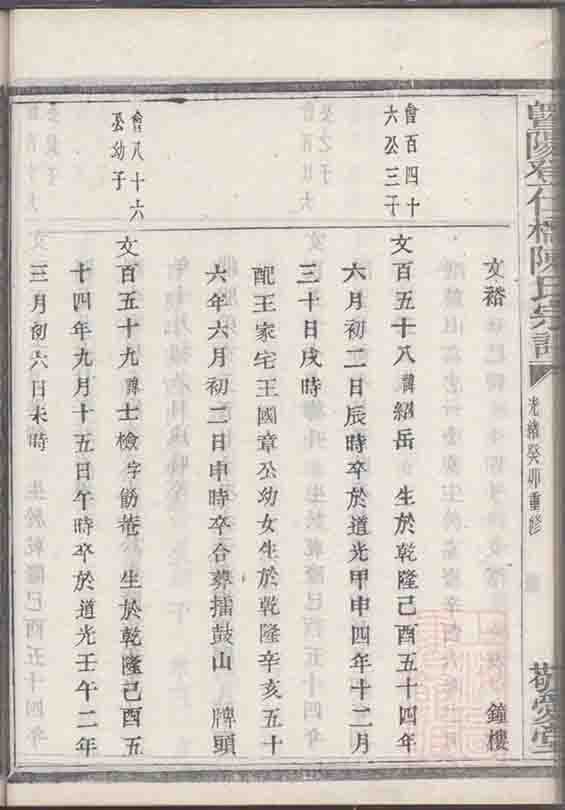 暨陽登仕橋陳氏宗譜
光緒癸卯重修
敬愛堂
文裕
鐘樓
會百四十
六公三子
文百五十八諱紹岳 生於乾隆己酉五十四年
六月初二日辰時卒於道光甲申四年十二月
三十日戌時
配王家宅王國章公幼女生於乾隆辛亥五十
六年六月初二日申時卒合葬擂鼓山 牌頭
會八十六
公幼子
文百五十九諱士檢字飭菴 生於乾隆己酉五
十四年九月十五日午時卒於道光壬午二年
三月初六日未時